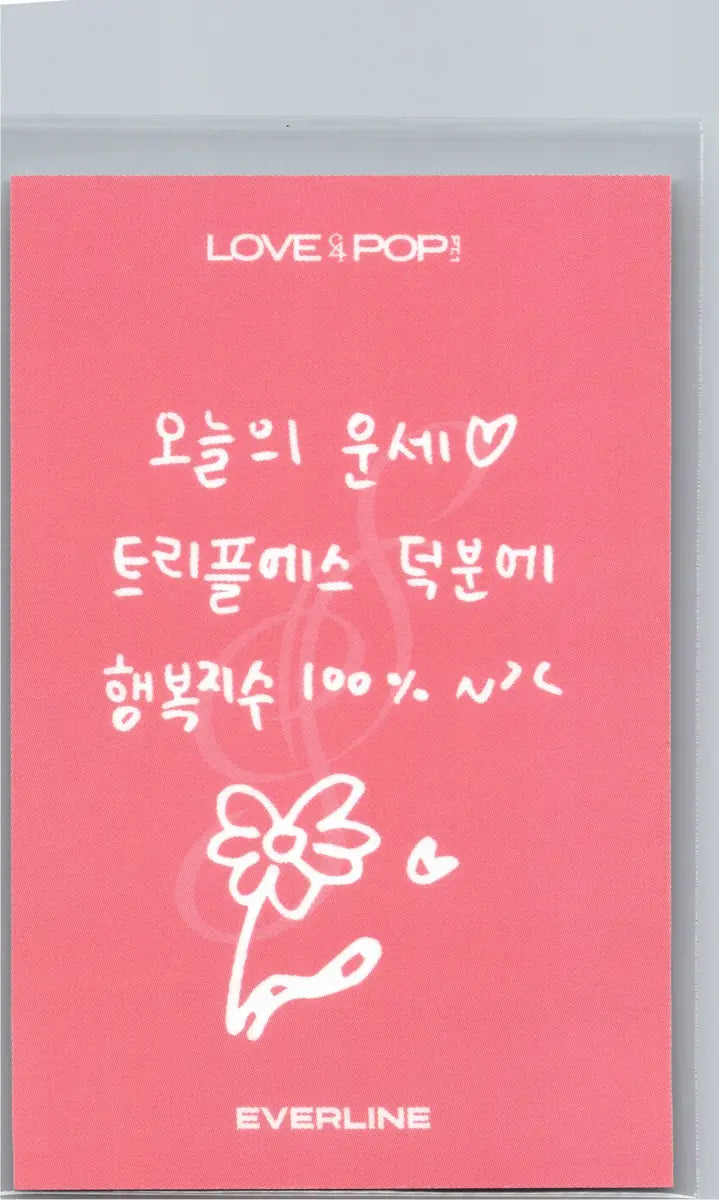 LOVE & 4 POP PT.1
오늘의 운세♡
트리플에스 덕분에
행복지수 100%
EVERLINE